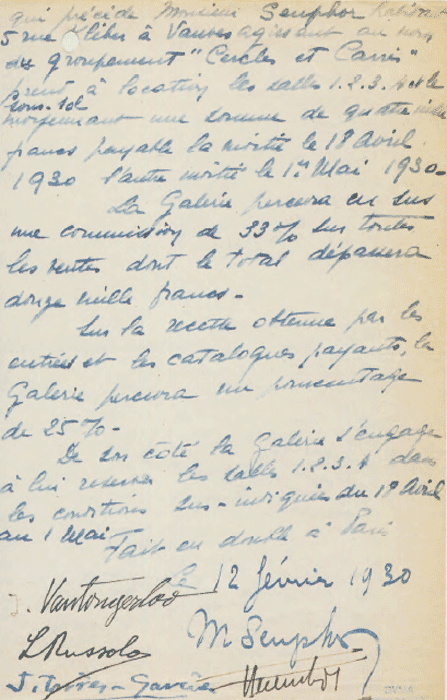 qui précède Monsieur Seuphor
5 rue Kléber à Vanves agissant au nom
du groupement "Cercles et Carrés"
prend à location les salles 1.2.3.4 et le
sous-sol
moyennant une somme de quatre mille
francs payable la moitié le 18 Avril
1930 l'autre moitié le 1er Mai 1930-
La Galerie percevra en sus
une commission de 33% sur toutes
les ventes dont le total dépassera
douze mille francs-
Sur la recette obtenue par les
entrées et les catalogues payants, la
Galerie percevra un pourcentage
de 25%-
De son côté la Galerie s'engage
à lui réserver les salles 1.2.3.4 dans
les conditions sus-indiquées du 18 Avril
au 1 Mai
Fait en double à Paris
le 12 février 1930
J. Vantongerloo
L Russolo
M Seuphor
J. Torres-Garcia